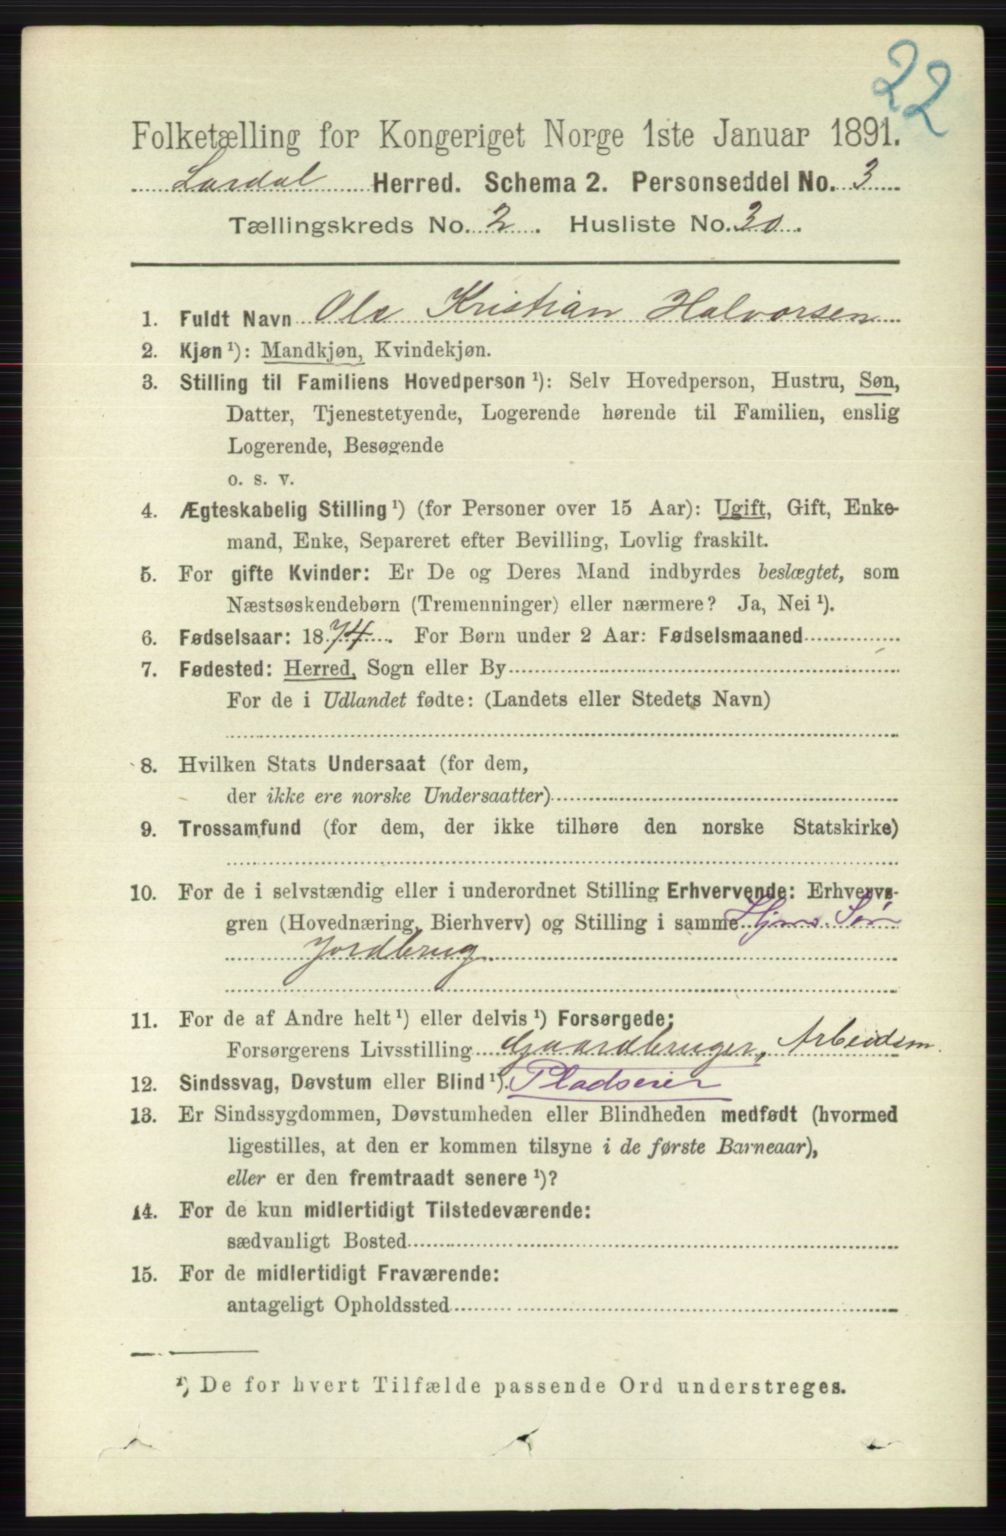 22
Folketælling for Kongeriget Norge 1ste Januar 1891.
Lardal Herred. Schema 2. Personseddel No. 3
Tællingskreds No. 2. Husliste No. 30.
1. Fuldt Navn Ole Kristian Halvorsen
2. Kjøn ¹): Mandkjøn, Kvindekjøn.
3. Stilling til Familiens Hovedperson ¹): Selv Hovedperson, Hustru, Søn,
Datter, Tjenestetyende, Logerende hørende til Familien, enslig
Logerende, Besøgende
o. s. v.
4. Ægteskabelig Stilling ¹) (for Personer over 15 Aar): Ugift, Gift, Enke-
mand, Enke, Separeret efter Bevilling, Lovlig fraskilt.
5. For gifte Kvinder: Er De og Deres Mand indbyrdes beslægtet, som
Næstsøskendebørn (Tremenninger) eller nærmere? Ja, Nei ¹).
6. Fødselsaar: 1874. For Børn under 2 Aar: Fødselsmaaned
7. Fødested: Herred, Sogn eller By
For de i Udlandet fødte: (Landets eller Stedets Navn)
8. Hvilken Stats Undersaat (for dem,
der ikke ere norske Undersaatter)
9. Trossamfund (for dem, der ikke tilhøre den norske Statskirke)
10. For de i selvstændig eller i underordnet Stilling Erhvervende: Erhvervs-
gren (Hovednæring, Bierhverv) og Stilling i samme Hjms. Søn
Jordbrug
11. For de af Andre helt ¹) eller delvis ¹) Forsørgede:
Forsørgerens Livsstilling Gaardbruger, Arbeidsm.
12. Sindssvag, Døvstum eller Blind ¹). Pladseier
13. Er Sindssygdommen, Døvstumheden eller Blindheden medfødt (hvormed
ligestilles, at den er kommen tilsyne i de første Barneaar),
eller er den fremtraadt senere ¹)?
14. For de kun midlertidigt Tilstedeværende:
sædvanligt Bosted
15. For de midlertidigt Fraværende:
antageligt Opholdssted
¹) De for hvert Tilfælde passende Ord understreges.